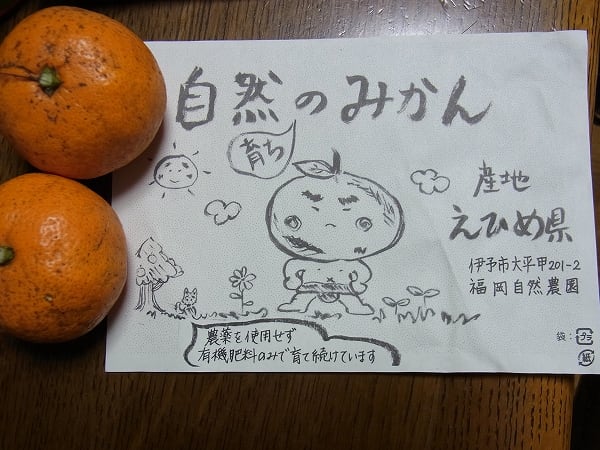 自然のみかん
育ち
産地
えひめ県
伊予市大平甲201-2
福岡自然農園
農薬を使用せず
有機肥料のみで育て続けています
袋:プラ
紙